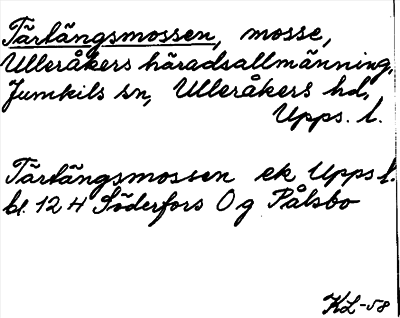 Tärtängsmossen, mosse,
Ulleråkers häradsallmänning,
Jumkils sn, Ulleråkers hd,
Upps. l.
Tärtängsmossen ek Upps l.
bl. 12 H Söderfors O g Pålsbo
KL-58